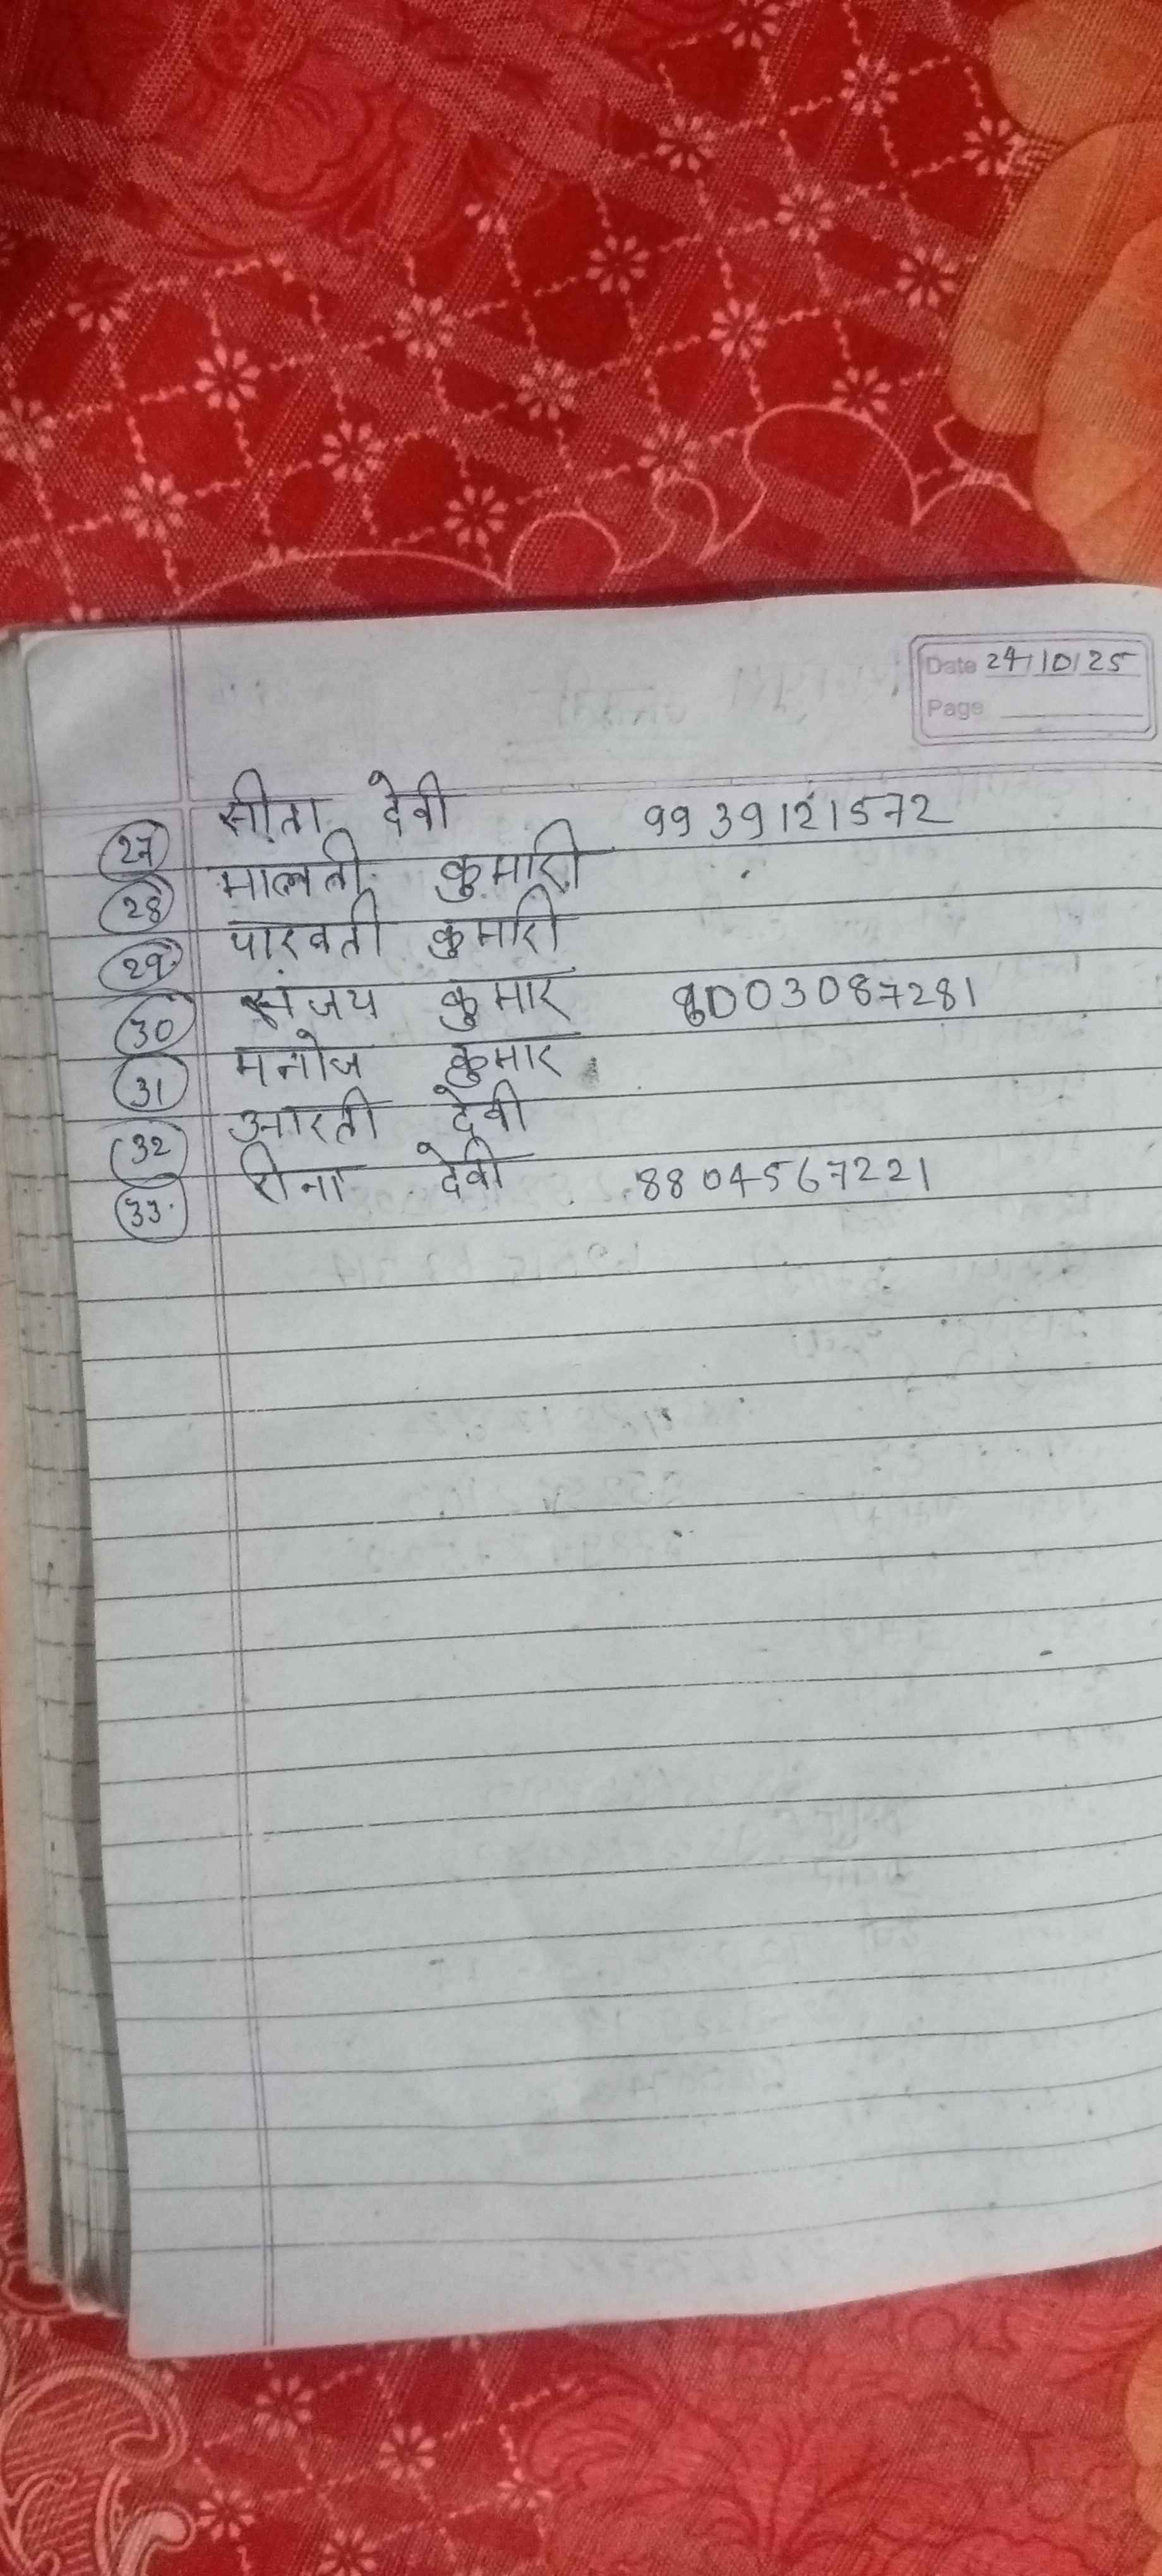 Date 24/10/25
Page
27 सीता देवी 9939121572
28 मालती कुमारी
29 पारवती कुमारी
30 संजय कुमार 8003087281
31 मनोज कुमार
32 आरती देवी
33 रीना देवी 8804567221